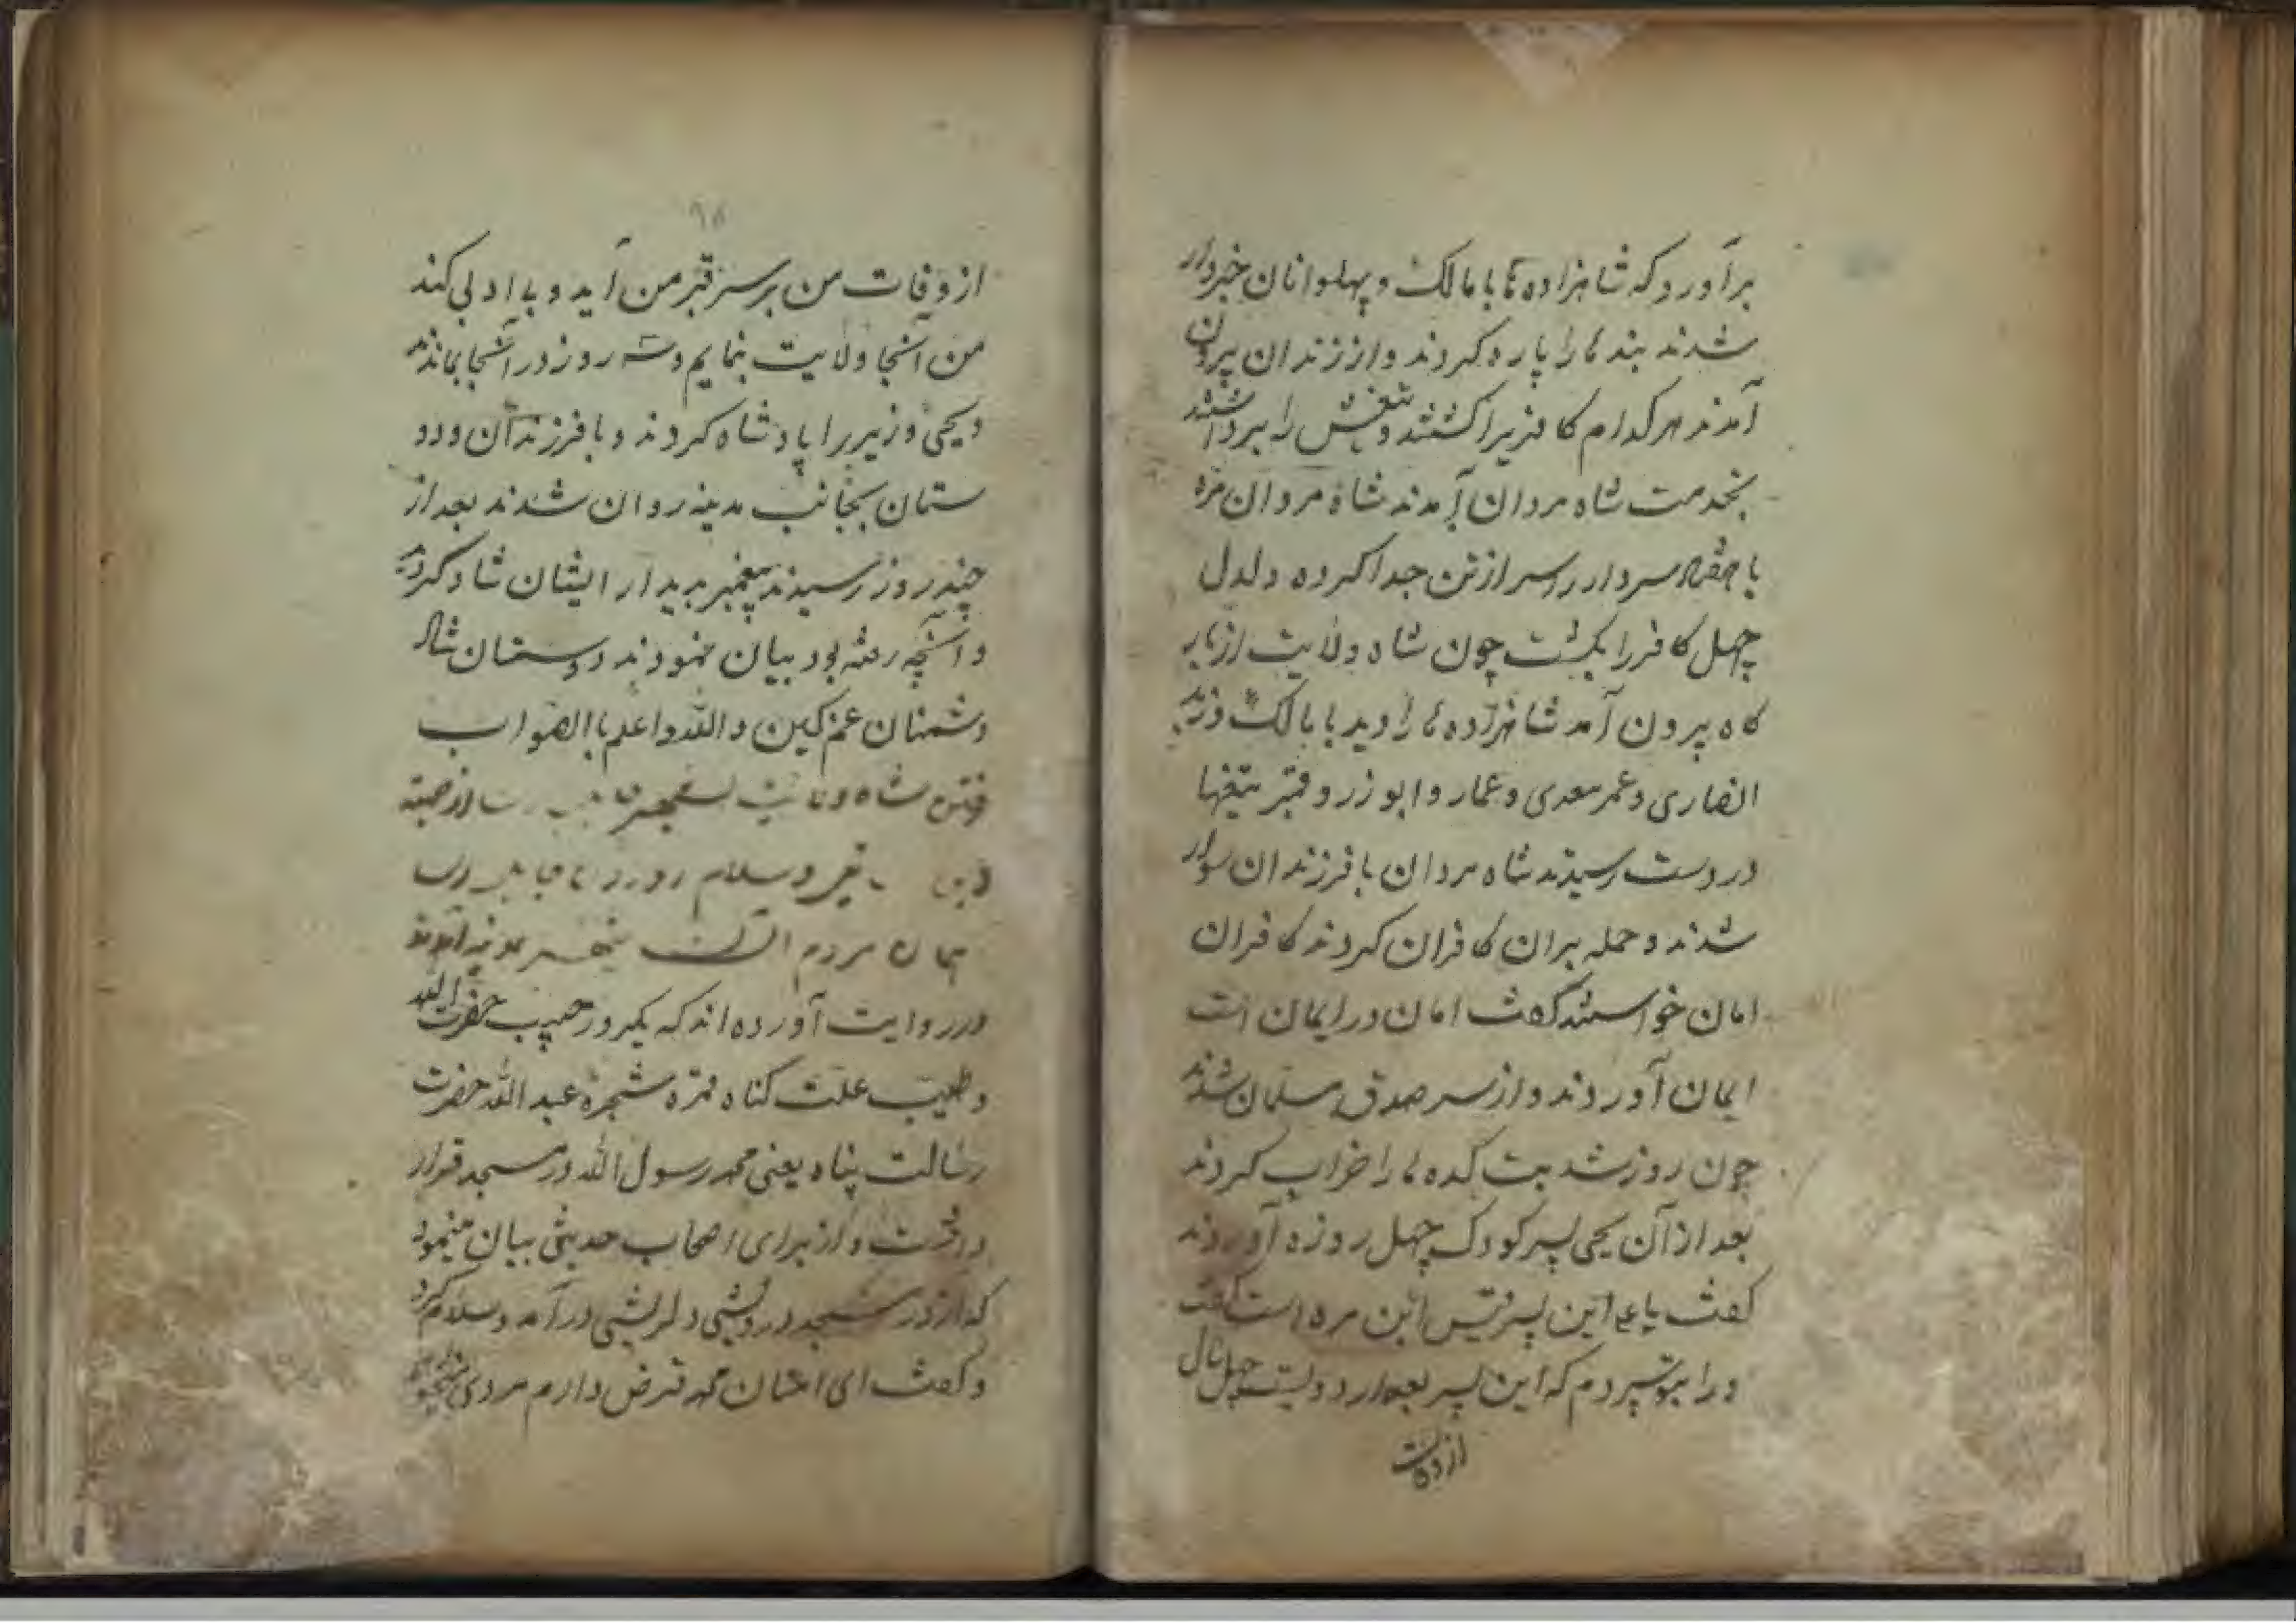 برآورد که شاهزاده‌ها با مالک و پهلوانان خبردار
شدند بندها را پاره کردند و از زندان بیرون
آمدند هر کدام کافریرا کشتند و تیغش را برداشتند
بخدمت شاه مردان آمدند شاه مردان مره
با هفده سردار را سر از تن جدا کرده دلدل
چهل کافر را بکشت چون شاه ولایت از بار
کاه بیرون آمد شاهزاده‌ها را دید با مالک
انصاری و عمر معدی و عمار و ابوذر و قنبر تیغها
در دست رسیدند شاه مردان با فرزندان سوار
شدند و حمله بران کافران کردند کافران
امان خواستند کفت امان در ایمان است
ایمان آوردند و از سر صدق مسلمان شدند
چون روز شد بت کده‌ها را خراب کردند
بعد از آن یحیی پسر کودک چهل روزه آوردند
کفت یا علی این پسر قیس ابن مره است کفت
ورا بتو سپردم که این پسر بعد از دویست چهل سال
از وفات
۹۸
از وفات من بر سر قبر من آید و بی ادبی کند
من آنجا ولایت بنمایم و سه روز در آنجا بماندند
و یحیی وزیر را پادشاه کردند و با فرزندان و دو
ستان بجانب مدینه روان شدند بعد از
چند روز رسیدند پیغمبر بدیدار ایشان شاد کردید
و آنچه رفته بود بیان نمودند دوستان شاد
دشمنان غمکین والله و اعلم باالصواب
شاه
سلام
مردم
در روایت آورده‌اند که یکروز حبیب حضرت الله
و طبیب علت کناه ثمره شجره عبد الله حضرت
رسالت پناه یعنی محمد رسول الله در مسجد قرار
داشت و از برای اصحاب حدیثی بیان مینمود
که از در مسجد درویشی دلریشی درآمد و سلام کرد
و کفت ای قرض دارم مردی